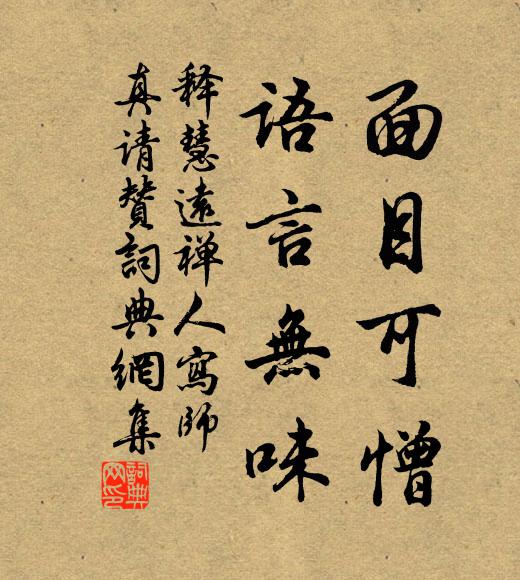 面目可憎
语言無味
释慧遠禅人寫師
真请赞詞典網集
詞典網印